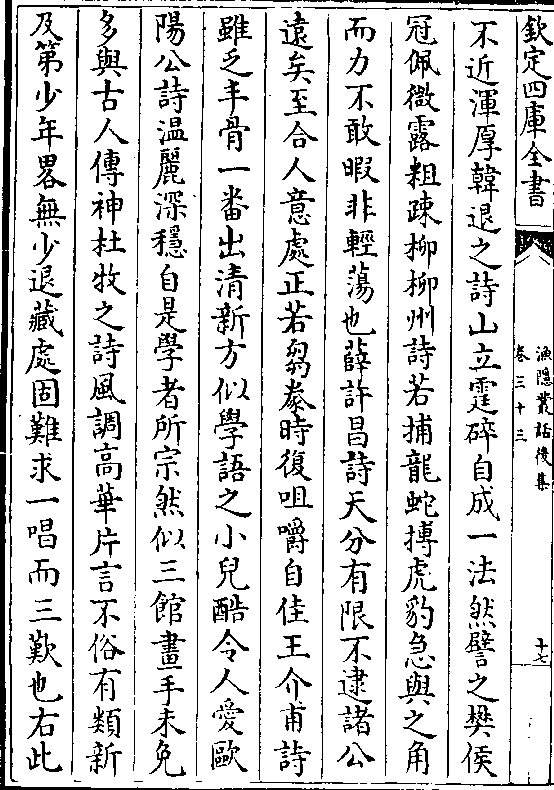 欽定四庫全書
漁隱叢話後集
卷三十三
十七
不近渾厚韓退之詩山立霆碎自成一法然譬之樊侯
冠佩微露粗疎柳柳州詩若捕龍蛇搏虎豹急與之角
而力不敢暇非輕蕩也薛許昌詩天分有限不逮諸公
遠矣至合人意處正若芻豢時復咀嚼自佳王介甫詩
雖乏丰骨一番出清新方似學語之小兒酷令人愛歐
陽公詩温麗深穩自是學者所宗然似三館畫手未免
多與古人傳神杜牧之詩風調高華片言不俗有類新
及第少年畧無少退藏處固難求一唱而三歎也右此